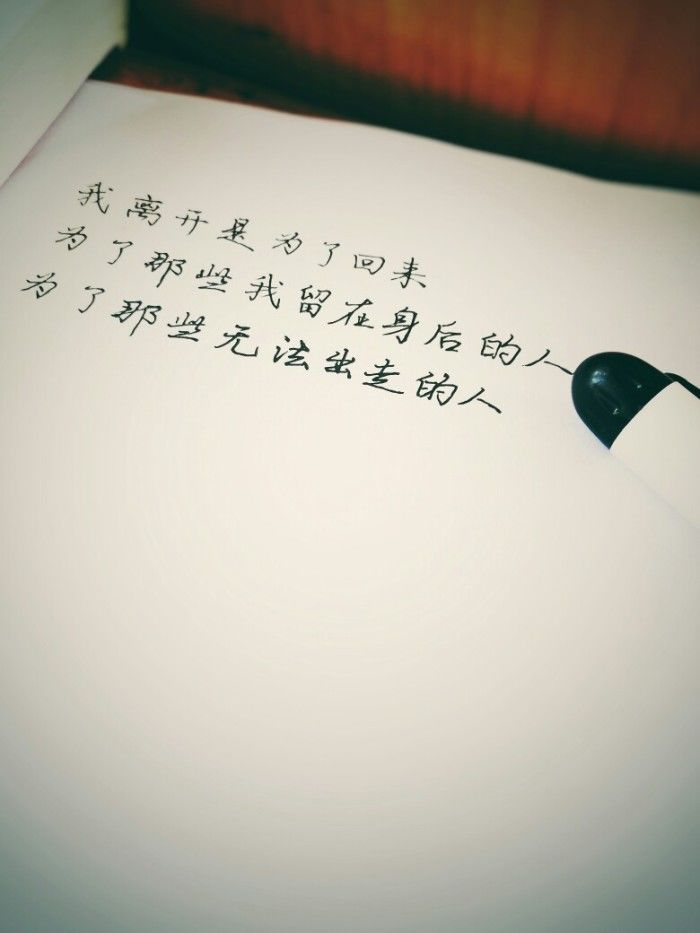 我离开是为了回来
为了那些我留在身后的人
为了那些无法出走的人